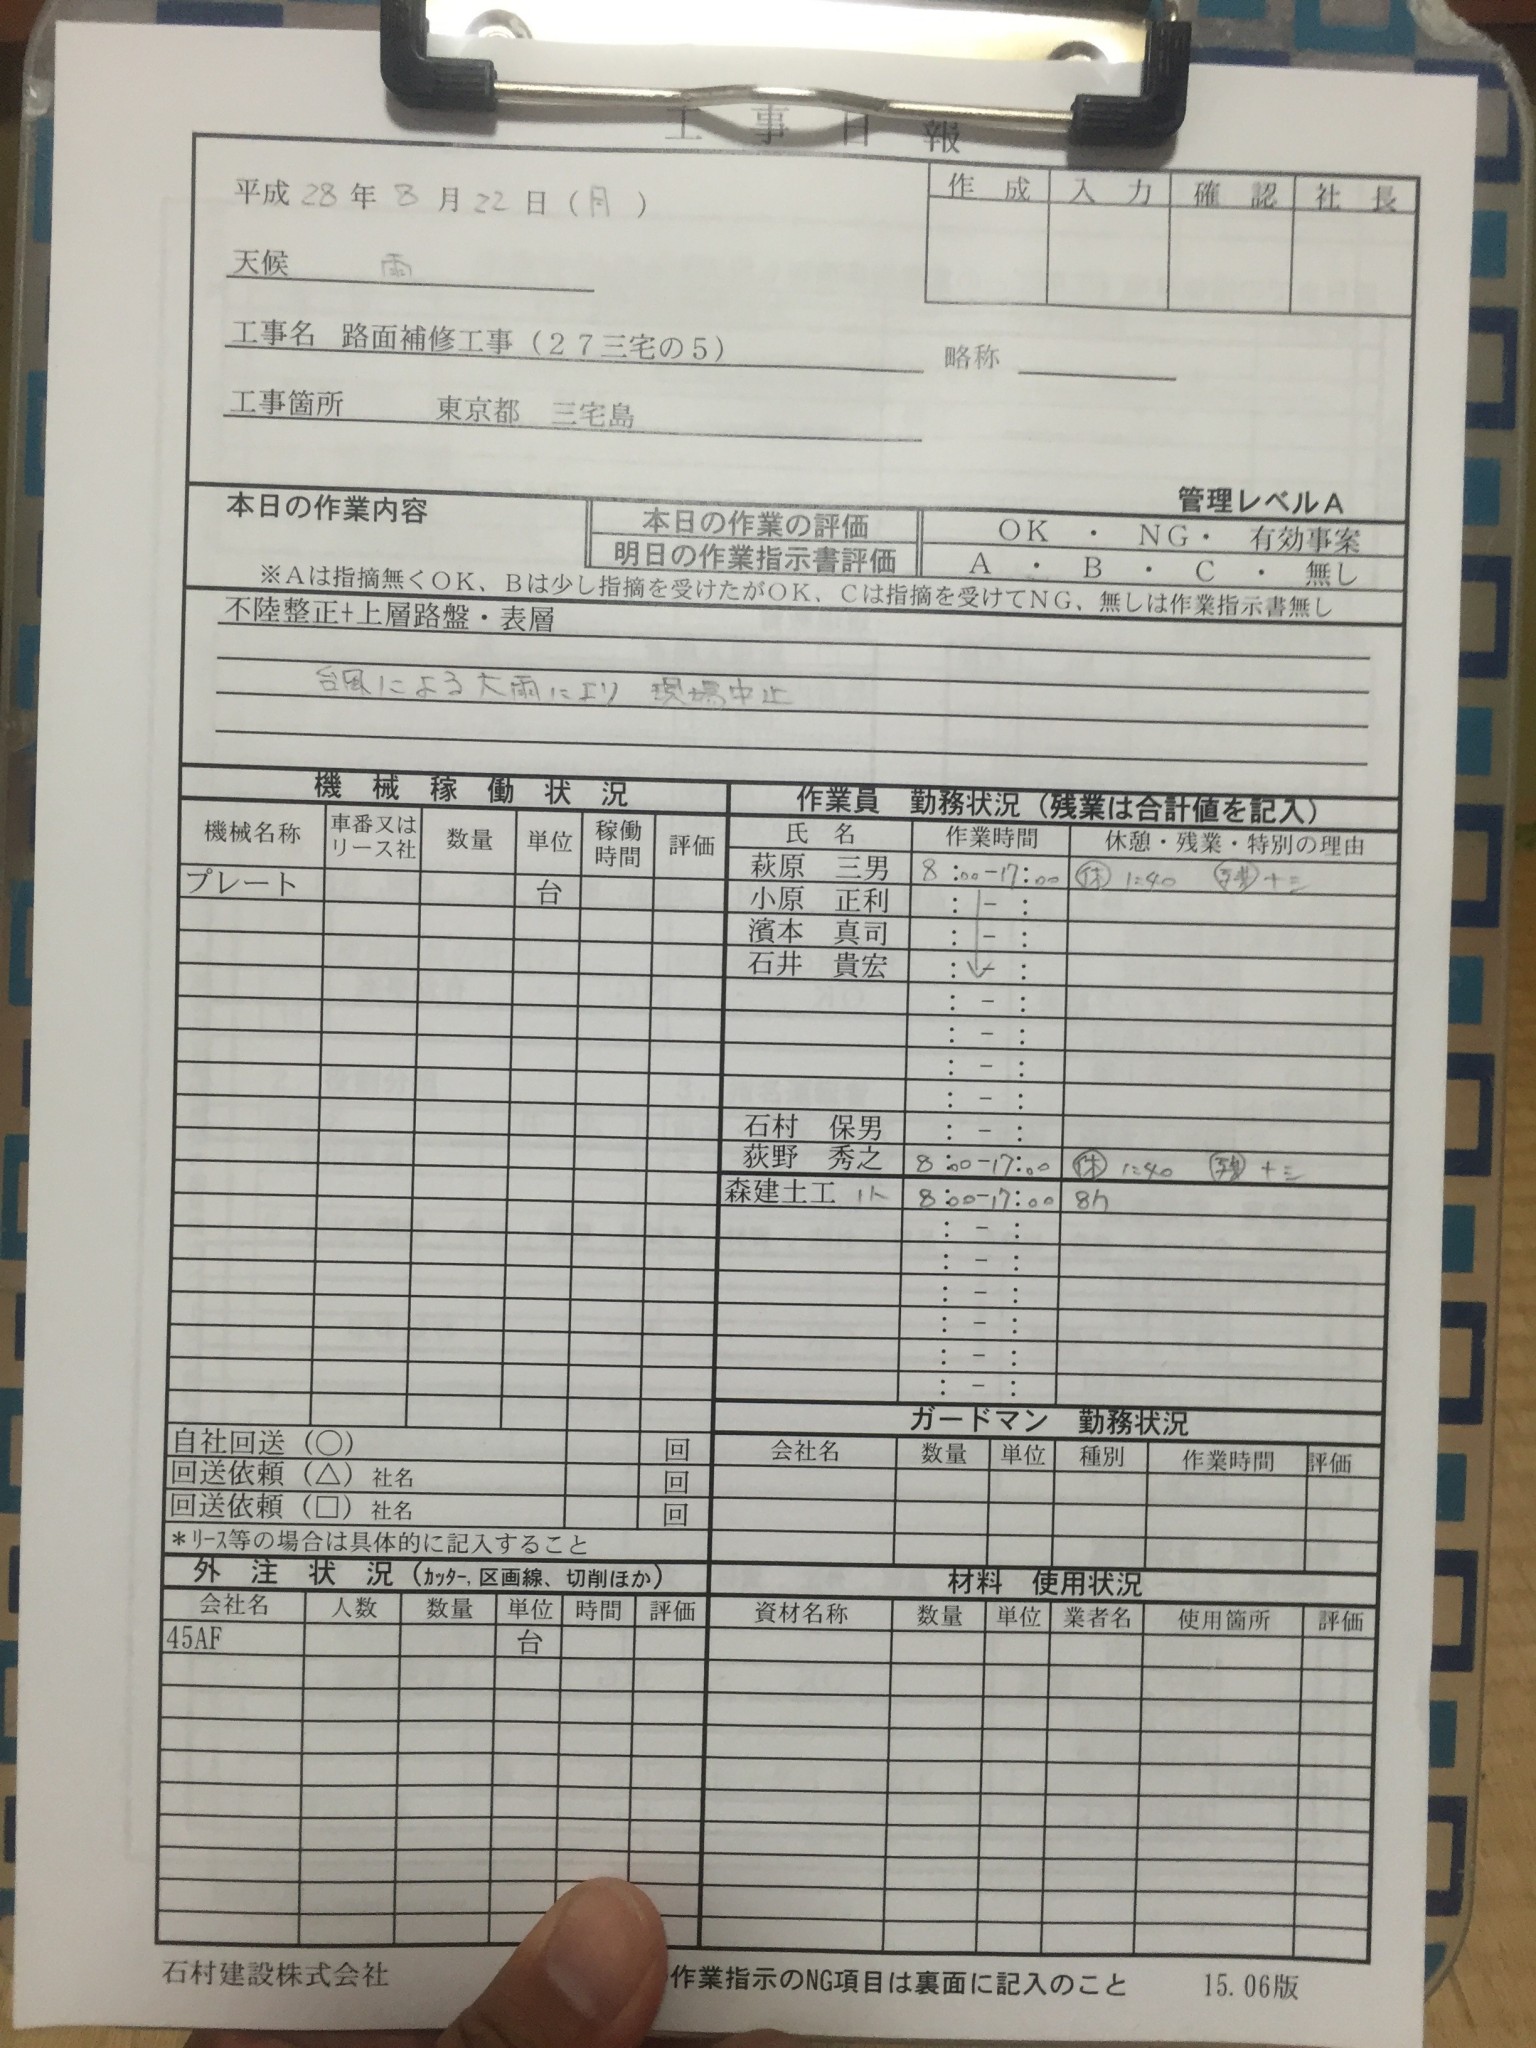 工事日報
平成 28 年 8 月 22 日 (月)
作成 入力 確認 社長
天候 雨
工事名 路面補修工事(27三宅の5) 略称
工事箇所 東京都 三宅島
管理レベルA
本日の作業内容 本日の作業の評価 OK ・ NG・ 有効事案
明日の作業指示書評価 A ・ B ・ C ・ 無し
※Aは指摘無くOK、Bは少し指摘を受けたがOK、Cは指摘を受けてNG、無しは作業指示書無し
不陸整正+上層路盤・表層
台風による大雨により 現場中止
機械稼働状況
機械名称 車番又はリース社 数量 単位 稼働時間 評価
プレート 台
自社回送(○) 回
回送依頼(△)社名 回
回送依頼(□)社名 回
*リース等の場合は具体的に記入すること
作業員 勤務状況(残業は合計値を記入)
氏名 作業時間 休憩・残業・特別の理由
萩原 三男 8:00-17:00 ㊡ 1:40 残
小原 正利 : - :
濱本 真司 : - :
石井 貴宏 : - :
: - :
: - :
: - :
: - :
石村 保男 : - :
荻野 秀之 8:00-17:00 ㊡ 1:40 残
森建土工 1人 8:00-17:00 8h
: - :
: - :
: - :
: - :
: - :
: - :
ガードマン 勤務状況
会社名 数量 単位 種別 作業時間 評価
外注状況(カッター,区画線、切削ほか)
会社名 人数 数量 単位 時間 評価
45AF 台
材料 使用状況
資材名称 数量 単位 業者名 使用箇所 評価
石村建設株式会社 作業指示のNG項目は裏面に記入のこと 15.06版